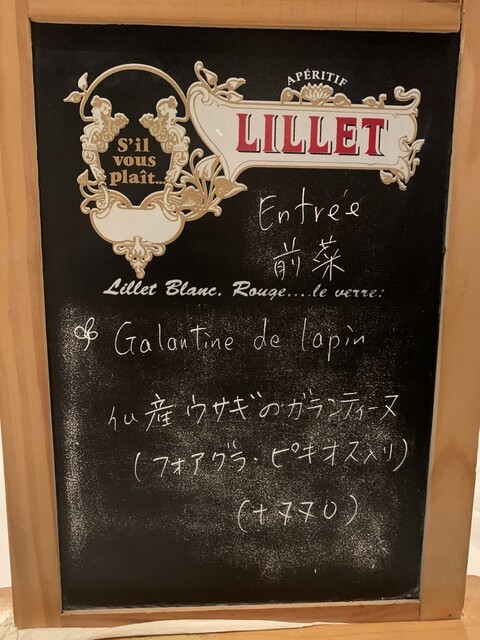 APÉRITIF
LILLET
S'il
vous
plaît...
Entrée
前菜
Lillet Blanc, Rouge....le verre:
Galantine de lapin
仏産ウサギのガランティーヌ
(フォアグラ・ピキオス入り)
(+770)